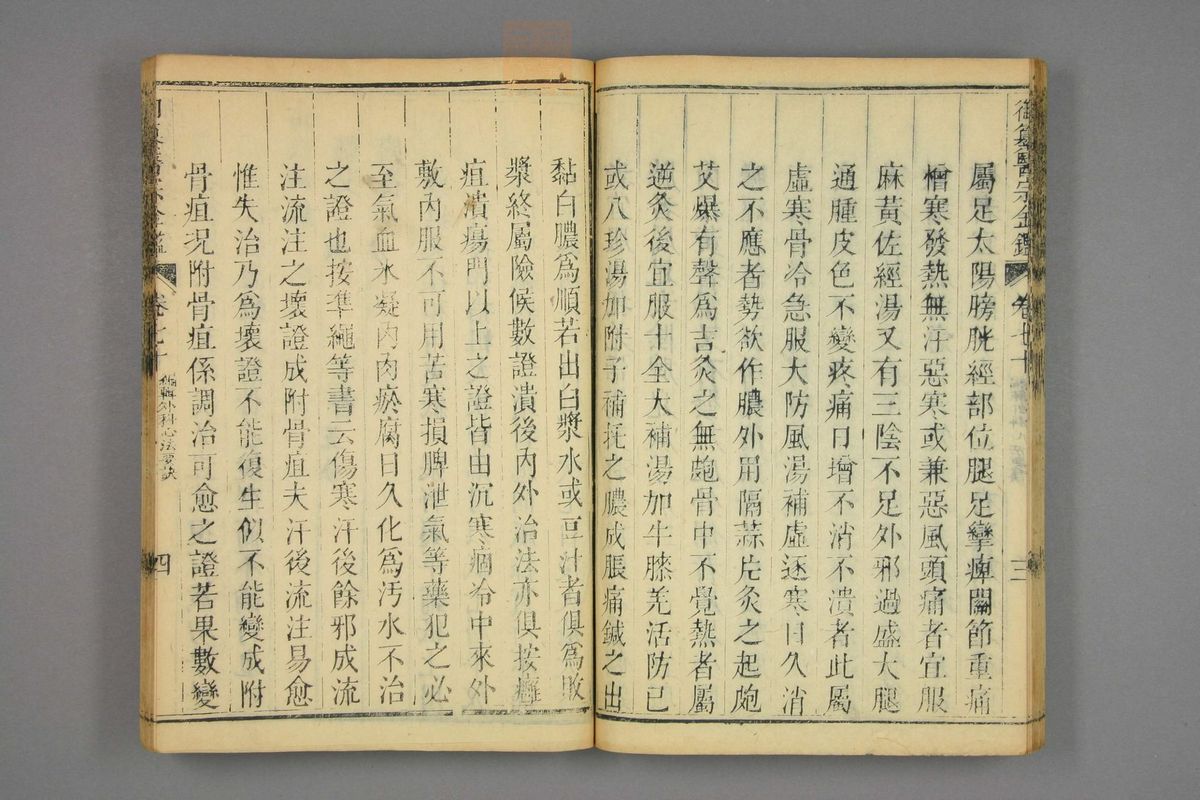 御纂醫宗金鑑
卷七十
三
屬足太陽膀胱經部位腿足攣痺關節重痛
憎寒發熱無汗惡寒或兼惡風頭痛者宜服
麻黃佐經湯又有三陰不足外邪過盛大腿
通腫皮色不變疼痛日增不消不潰者此屬
虛寒骨冷急服大防風湯補虛逐寒日久消
之不應者勢欲作膿外用隔蒜片灸之起皰
艾爆有聲爲吉灸之無皰骨中不覺熱者屬
逆灸後宜服十全大補湯加牛膝羌活防己
或八珍湯加附子補托之膿成脹痛鍼之出
黏白膿爲順若出白漿水或豆汁者俱爲敗
漿終屬險候數證潰後內外治法亦俱按癰
疽潰瘍門以上之證皆由沉寒痼冷中來外
敷內服不可用苦寒損脾泄氣等藥犯之必
至氣血氷凝內肉瘀腐日久化爲汚水不治
之證也按準繩等書云傷寒汗後餘邪成流
注流注之壞證成附骨疽夫汗後流注易愈
惟失治乃爲壞證不能復生似不能變成附
骨疽况附骨疽係調治可愈之證若果數變
卷七十
編輯外科心法要訣
四